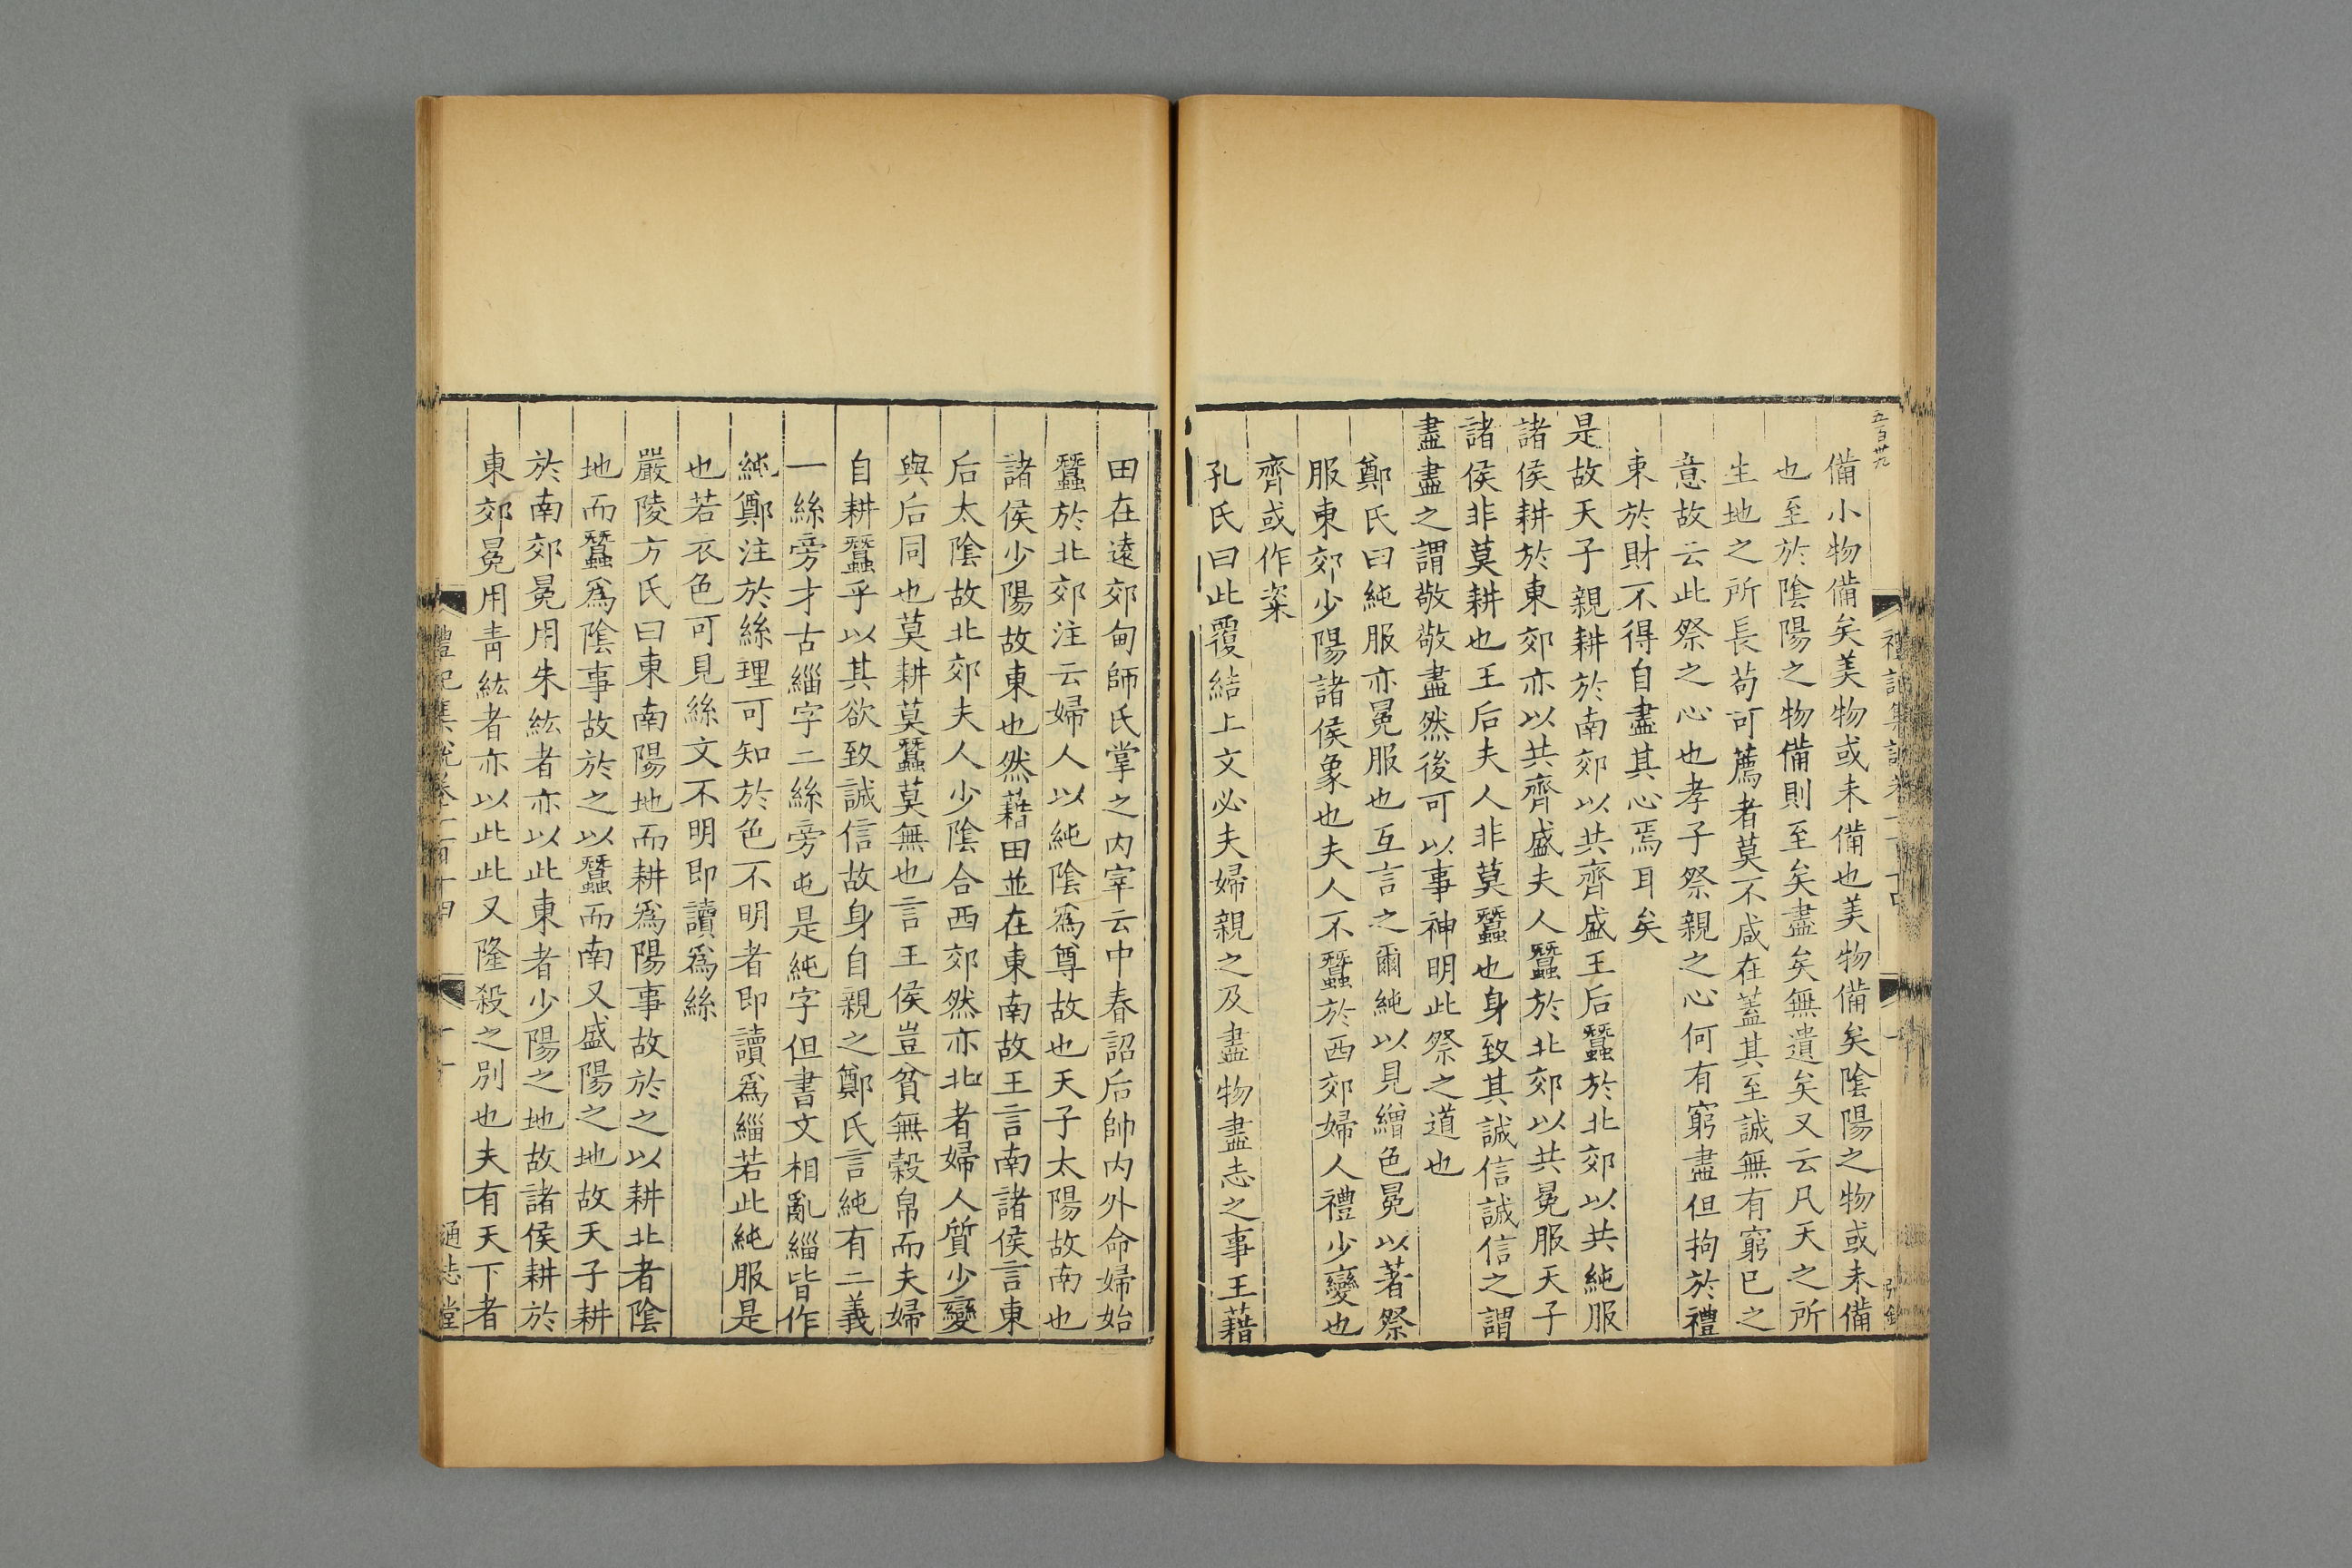 五百卅九
備小物備矣美物或未備也美物備矣陰陽之物或未備
也至於陰陽之物備則至矣盡矣無遺矣又云凡天之所
生地之所長苟可薦者莫不咸在蓋其至誠無有窮已之
意故云此祭之心也孝子祭親之心何有窮盡但拘於禮
束於財不得自盡其心焉耳矣
是故天子親耕於南郊以共齊盛王后蠶於北郊以共純服
諸侯耕於東郊亦以共齊盛夫人蠶於北郊以共冕服天子
諸侯非莫耕也王后夫人非莫蠶也身致其誠信誠信之謂
盡盡之謂敬敬盡然後可以事神明此祭之道也
鄭氏曰純服亦冕服也互言之爾純以見繒色冕以著祭
服東郊少陽諸侯象也夫人不蠶於西郊婦人禮少變也
齊或作粢
孔氏曰此覆結上文必夫婦親之及盡物盡志之事王藉
田在遠郊甸師氏掌之内宰云中春詔后帥内外命婦始
蠶於北郊注云婦人以純陰爲尊故也天子太陽故南也
諸侯少陽故東也然藉田並在東南故王言南諸侯言東
后太陰故北郊夫人少陰合西郊然亦北者婦人質少變
與后同也莫耕莫蠶莫無也言王侯豈貧無穀帛而夫婦
自耕蠶乎以其欲致誠信故身自親之鄭氏言純有二義
一絲旁才古緇字二絲旁屯是純字但書文相亂緇皆作
純鄭注於絲理可知於色不明者即讀爲緇若此純服是
也若衣色可見絲文不明即讀爲絲
嚴陵方氏曰東南陽地而耕爲陽事故於之以耕北者陰
地而蠶爲陰事故於之以蠶而南又盛陽之地故天子耕
於南郊冕用朱紘者亦以此東者少陽之地故諸侯耕於
東郊冕用青紘者亦以此此又隆殺之別也夫有天下者
禮記集說卷
通志堂